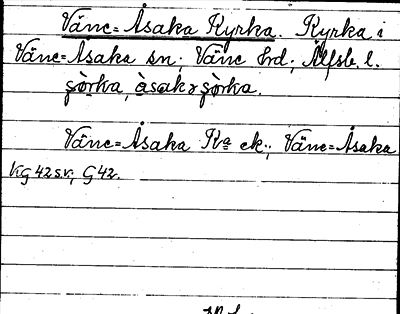 Väne=Åsaka Kyrka. Kyrka i
Väne=Åsaka sn; Väne hrd; Älfsb. l.
şòrka, àsakaşòrka.
Väne=Åsaka Ka ek.; Väne=Åsaka
KG 42 s.v., G 42.